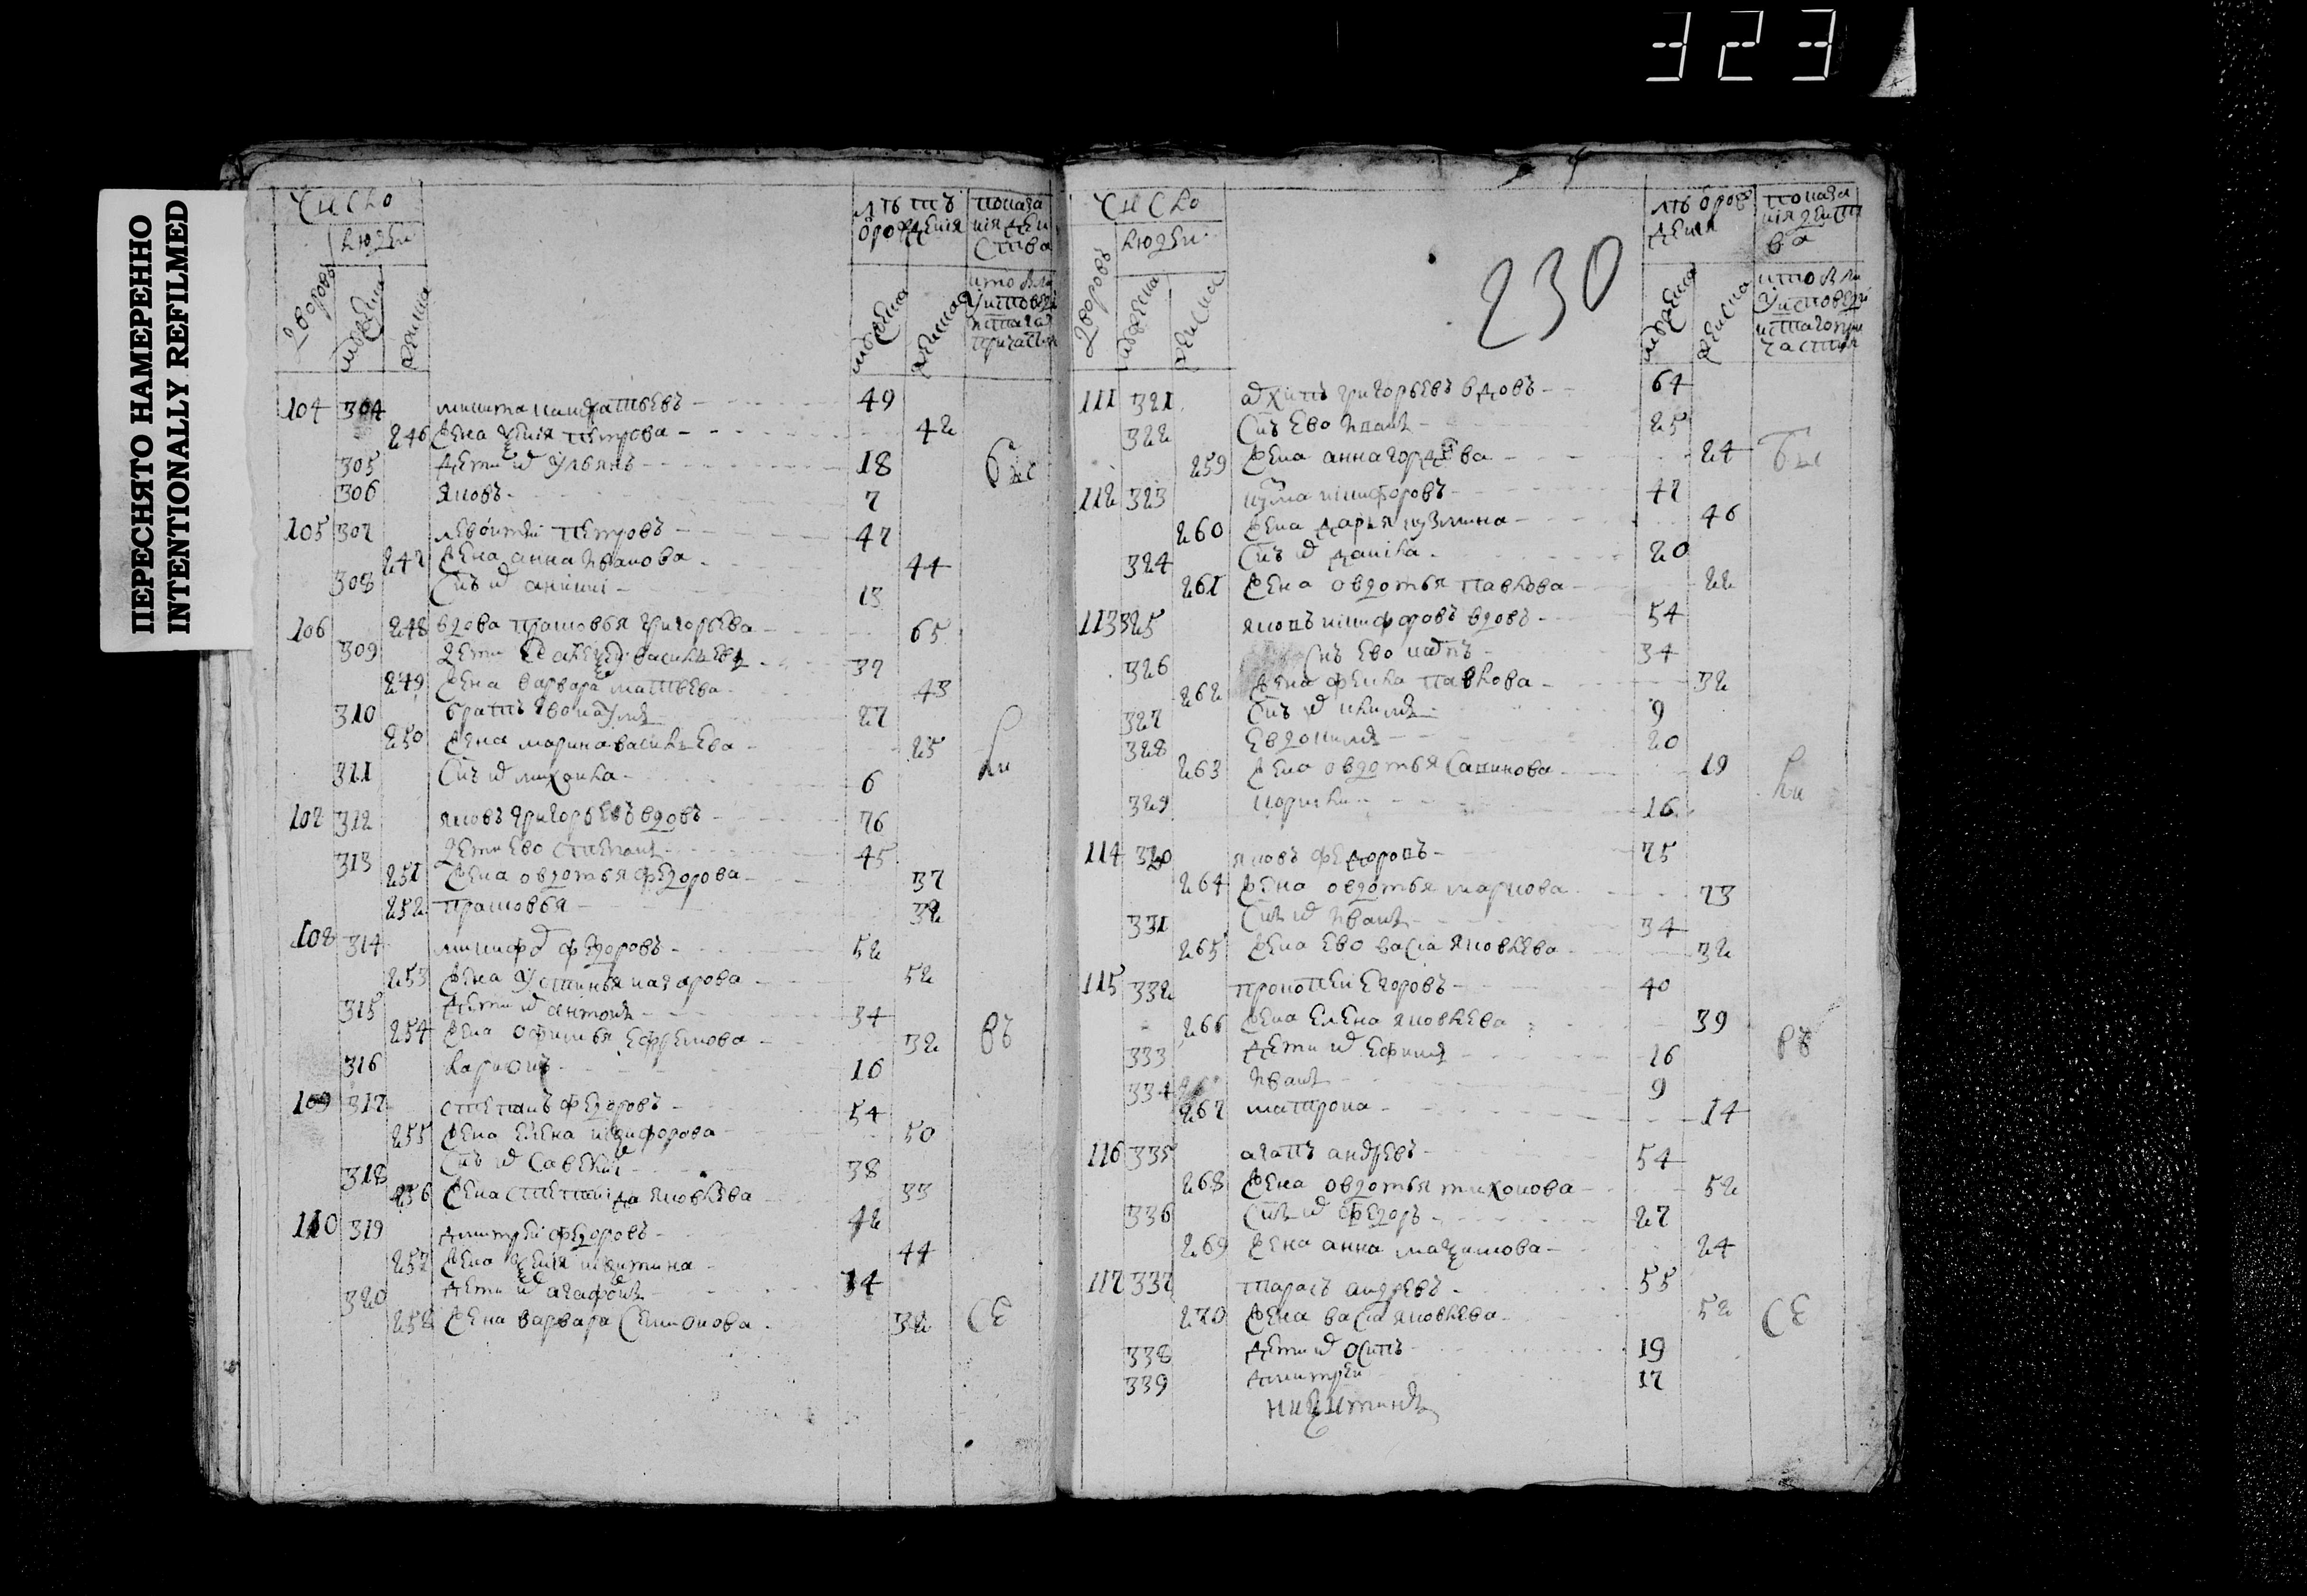 323
ПЕРЕСНЯТО НАМЕРЕННО
INTENTIONALLY REFILMED
Число
людеи
дворовъ
мужеска
женска
лѣтъ
отрождения
мужеска
женска
показа
ния деи
ства
кто былъ
у исповеди
и стаго
причастия
104 304 никита панкратьевъ 49
246 жена ксения петрова 42
305 дети их ульянъ 18
306 яковъ 7
105 307 левонтеи петровъ 47
247 жена анна иванова 44
308 снъ их 13
106 248 вдова прасковья григорьева 65
309 дети ее алексеи васильевъ 37
249 жена варвара матвеева 43
310 братъ ево наумъ 27
250 жена марина васильева 25
311 снъ их михаила 6
107 312 яковъ григорьевъ вдовъ 76
313 дети ево степанъ 45
251 жена овдотья федорова 37
252 прасковья 32
108 314 никифоръ федоровъ 52
253 жена устинья назарова 52
315 дети их антонъ 34
254 жена офимья ефремова 32
316 ларионъ 10
109 317 степанъ федоровъ 54
255 жена елена никифорова 50
318 снъ их савелеи 38
256 жена степанида яковлева 33
110 319 дмитреи федоровъ 42
257 жена ксения никитина 44
320 дети их агафонъ 34
258 жена варвара семионова 32
бы
ли
въ
се
Число
людеи
дворовъ
мужеска
женска
230
лѣтъ отрож
дения
мужеска
женска
показа
ния деист
ва
кто былъ
у исповеди
и стаго при
частия
111 321 архипъ григорьевъ вдовъ 64
322 снъ ево иванъ 25
259 жена анна гордеева 24
112 323 кузма никифоровъ 47
260 жена дарья кузмина 46
324 снъ их данила 20
261 жена овдотья павлова 22
113 325 яковъ никифоровъ вдовъ 54
326 снъ ево карпъ 34
262 жена фекла павлова 32
327 снъ их екимъ 9
328 евдокимъ 20
263 жена овдотья савинова 19
329 16
114 330 яковъ федоровъ 75
264 жена овдотья маркова 73
331 снъ их иванъ 34
265 жена ево васса яковлева 32
115 332 прокопеи егоровъ 40
266 жена елена яковлева 39
333 дети их ефимъ 16
334 иванъ 9
267 матрона 14
116 335 агапъ андревъ 54
268 жена овдотья тихонова 52
336 снъ их федоръ 27
269 жена анна макимова 24
117 337 тарасъ андревъ 55
270 жена васса яковлева 52
338 дети их осипъ 19
339 дмитреи 17
никитинъ
бы
ли
въ
се